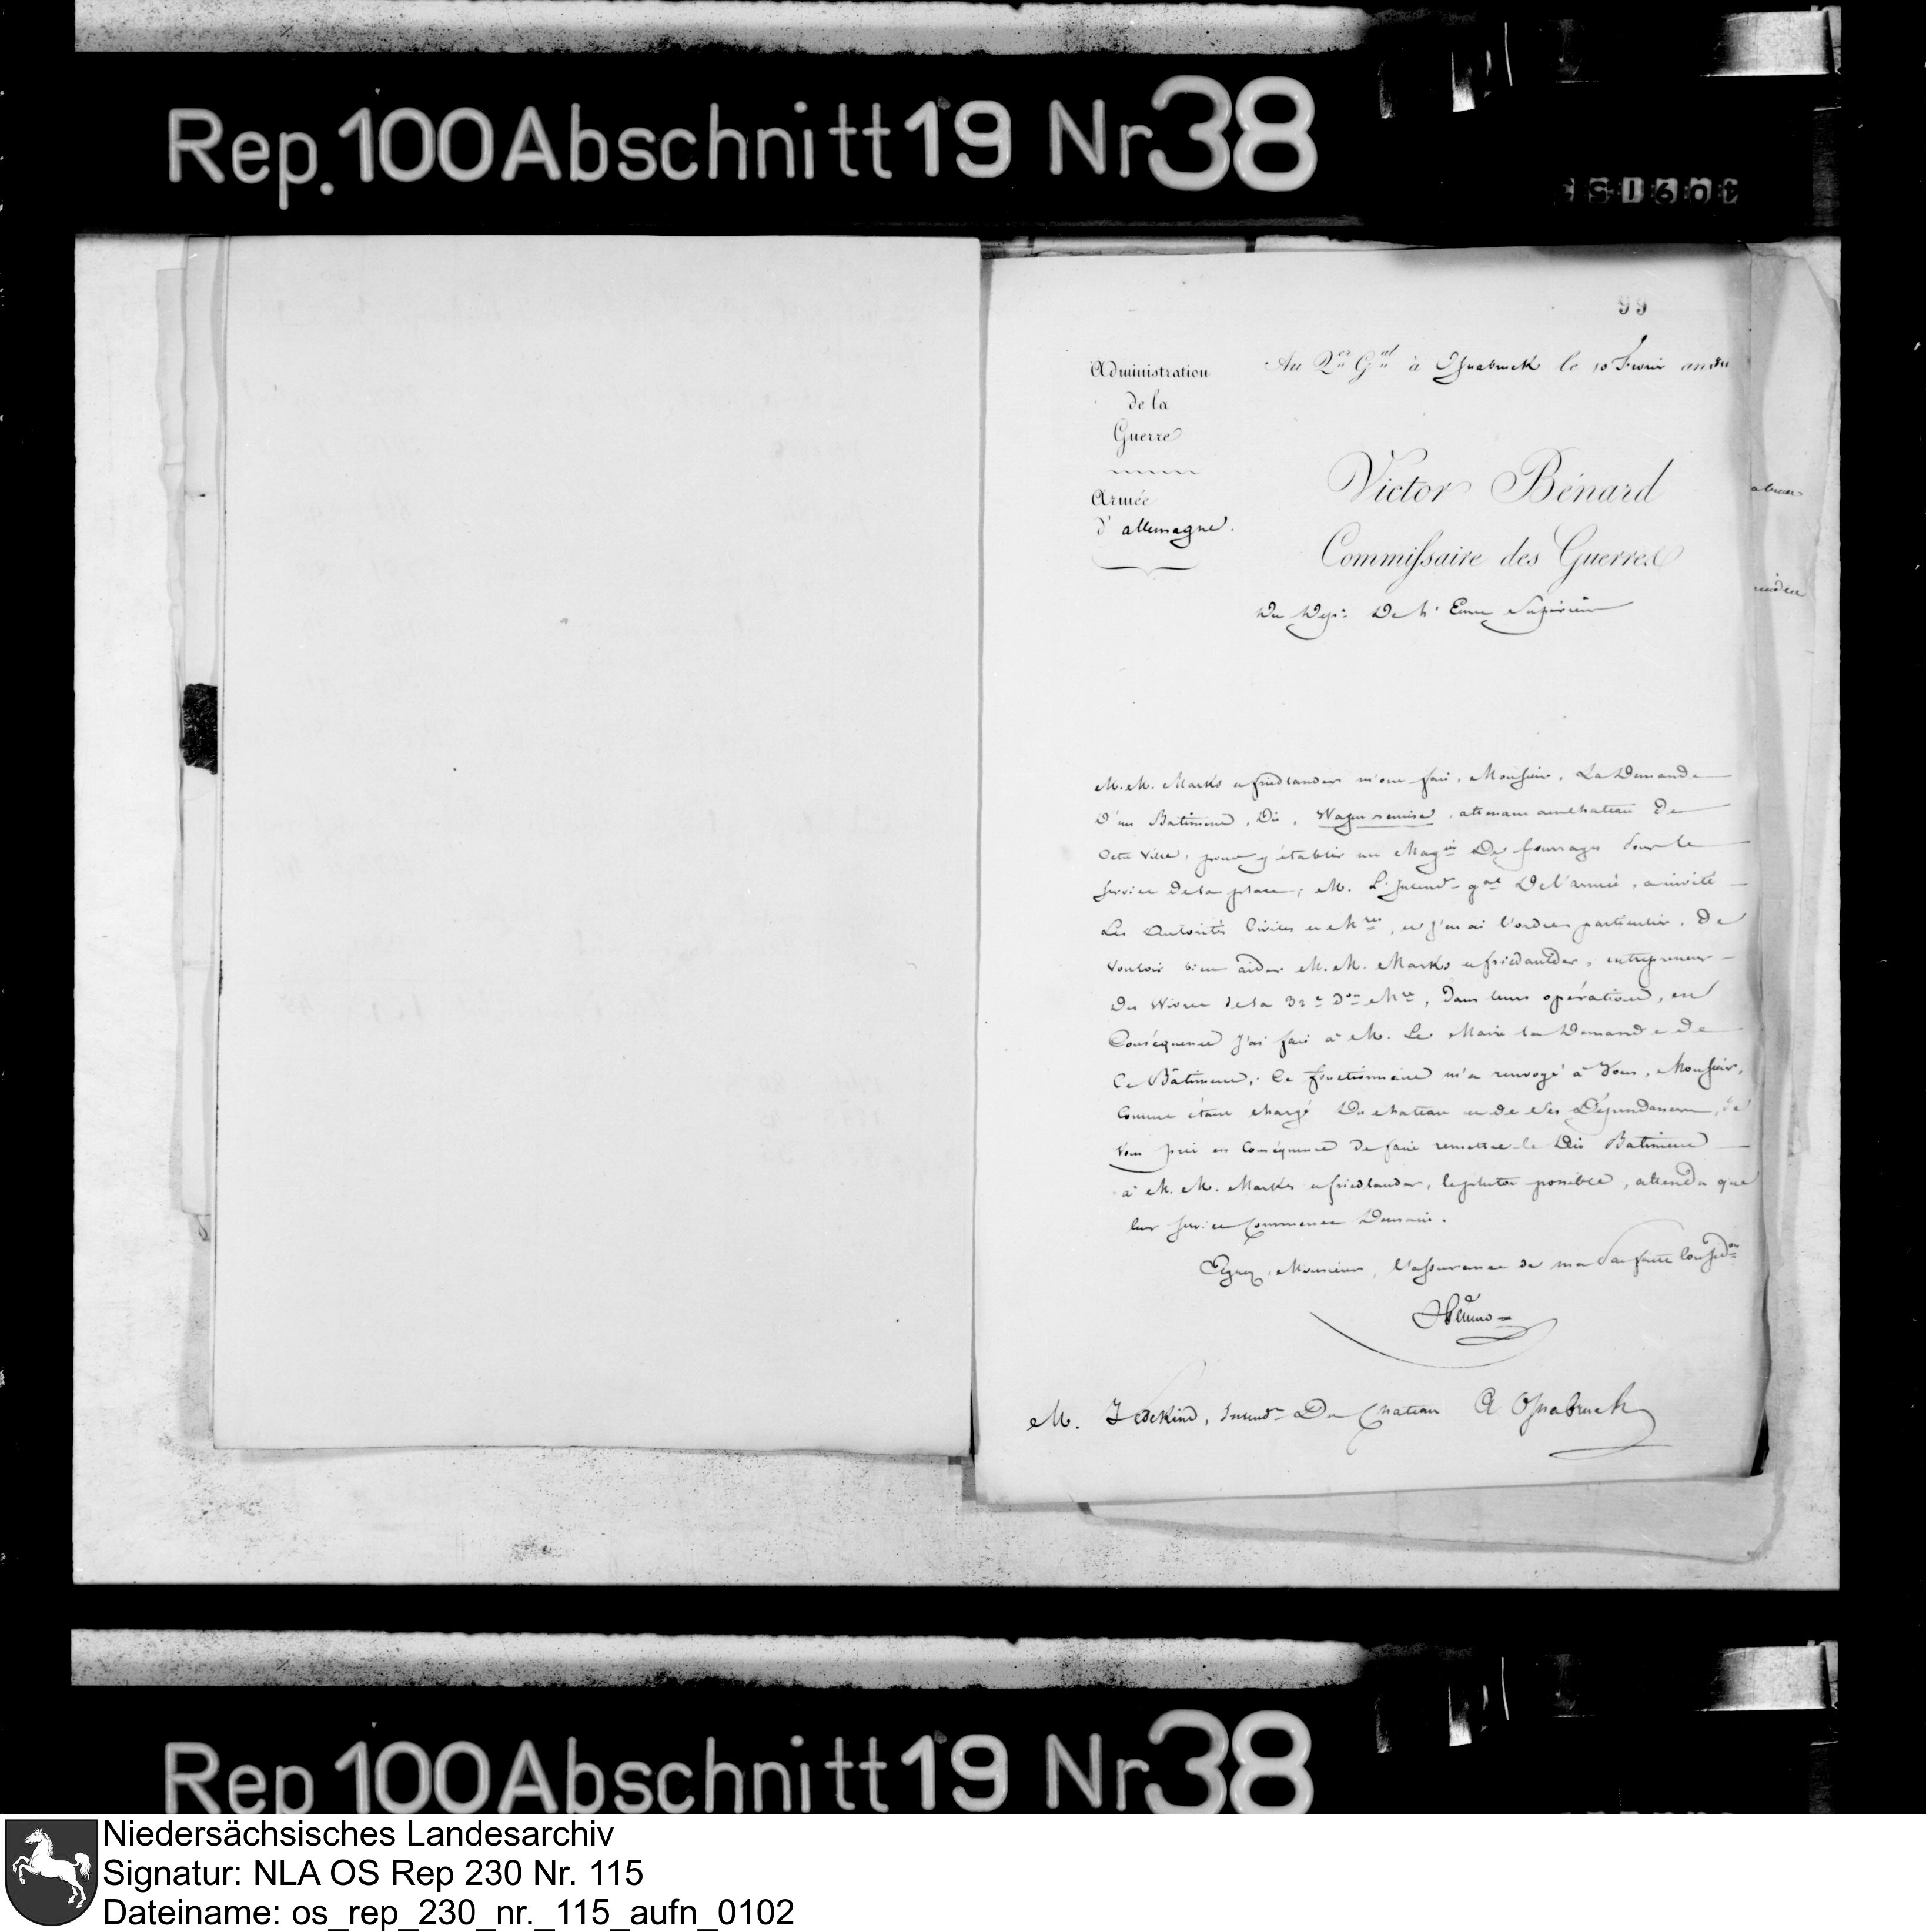 Rep. 100 Abschnitt 19 Nr 38
99
Au Q.er G.al à Osnabruck le 10 Fevrier an
Administration
de la
Guerre
Armée
d' allemagne.
Victor Bénard
Commissaire des Guerres
Du Dep.t De l' Ems Supérieur
M.M. Marks et friedlander m'ont fait, Monsieur, La Demande
D'un Batiment, Dit, Wagenremise, attenant au chateau De
Cette ville, pour y établir un Mag.in De fourrages pour le
service de la place; M. L'Intend.t g.al De l'armée, a invité
Les Autorités Civiles et M.res, et j'en ai l'ordre particulier, De
vouloir bien aider M.M. Marks et friedanlder, entrepreneur
Des Vivres de la 32.e D.on M.re, Dans leurs opérations, en
Conséquence j'ai fait à M. Le Maire la Demande De
Ce Bâtiment, Ce fonctionnaire m'a renvoyé à Vous, Monsieur,
Comme étant chargé Du chateau et de ses Dépendances, Je
Vous prie en conséquence De faire remettre le Dit Batiment
à M.M. Marks et friedlander, le plutot possible, attendu que
leur service commence Demain.
Agréez, Monsieur, l'assurance de ma parfaite Consid.on
M. Vedekind, Intend.t Du Chateau A Osnabruck
Rep 100 Abschnitt 19 Nr 38
Niedersächsisches Landesarchiv
Signatur: NLA OS Rep 230 Nr. 115
Dateiname: os_rep_230_nr._115_aufn_0102